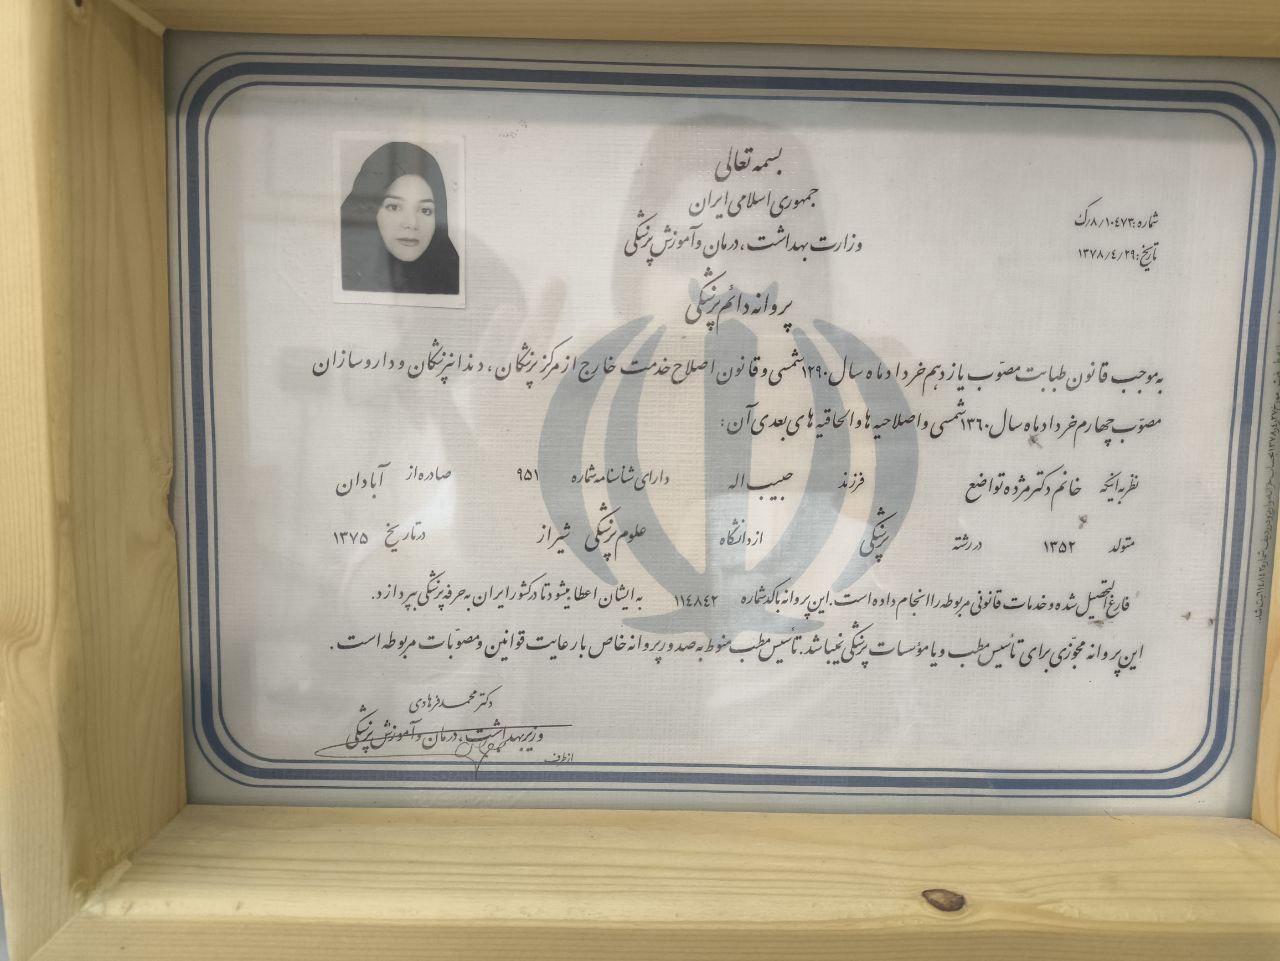 بسمه تعالی
جمهوری اسلامی ایران
وزارت بهداشت، درمان و آموزش پزشکی
شماره: ۸/۱۰۴۷۳/رک
تاریخ: ۱۳۷۸/۴/۲۹
پروانه دائم پزشکی
به موجب قانون طبابت مصوّب یازدهم خرداد ماه سال ۱۲۹۰ شمسی و قانون اصلاح خدمت خارج از مرکز پزشکان، دندانپزشکان و داروسازان
مصوّب چهارم خرداد ماه سال ۱۳۶۰ شمسی و اصلاحیه ها والحاقیه های بعدی آن:
نظر به اینکه خانم دکتر مژده تواضع فرزند حبیب اله دارای شناسنامه شماره ۹۵۱ صادره از آبادان
متولد ۱۳۵۲ در رشته پزشکی از دانشگاه علوم پزشکی شیراز در تاریخ ۱۳۷۵
فارغ التحصیل شده و خدمات قانونی مربوطه را انجام داده است. این پروانه با کد شماره ۱۱۴۸۴۲ به ایشان اعطا میشود تا در کشور ایران به حرفه پزشکی بپردازد.
این پروانه مجوّزی برای تأسیس مطب و یا مؤسسات پزشکی نمیباشد. تأسیس مطب منوط به صدور پروانه خاص با رعایت قوانین و مصوّبات مربوطه است.
دکتر محمد فرهادی
وزیر بهداشت، درمان و آموزش پزشکی
از طرف